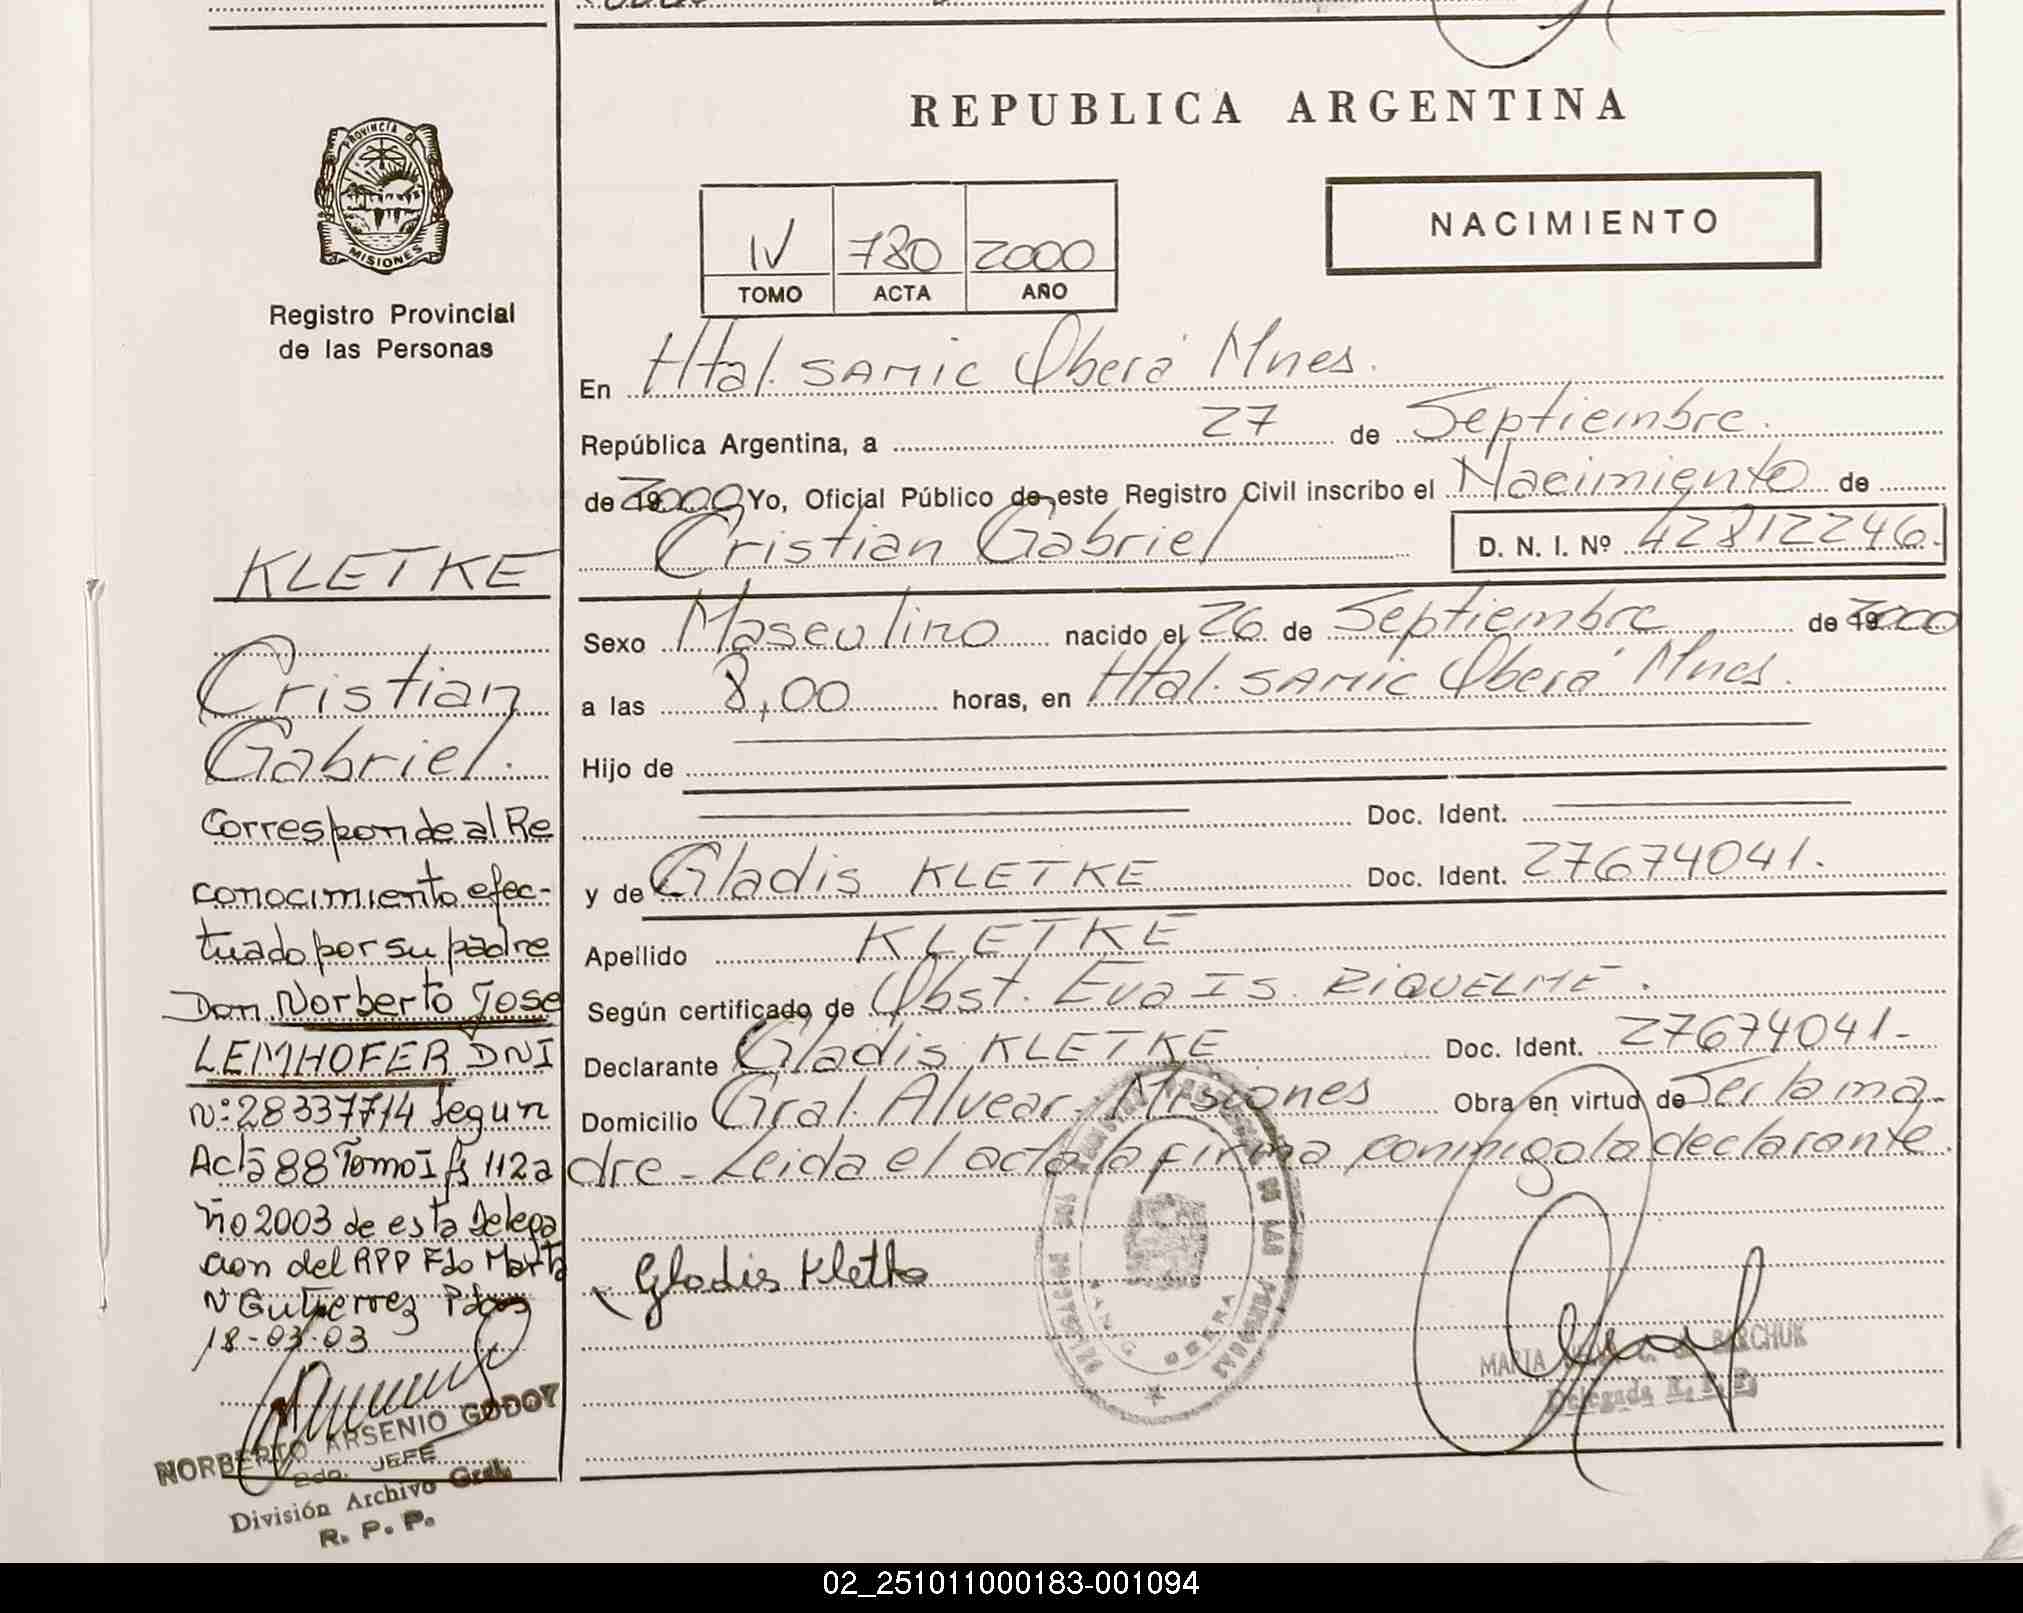 REPUBLICA ARGENTINA
NACIMIENTO
IV 780 2000
TOMO ACTA AÑO
PROVINCIA DE
MISIONES
Registro Provincial
de las Personas
En Htal. SAMIC Oberá Mnes.
República Argentina, a 27 de Septiembre.
de 2000 Yo, Oficial Público de este Registro Civil inscribo el Nacimiento de
Cristian Gabriel D. N. I. Nº 42812246.
Sexo Masculino nacido el 26 de Septiembre de 2000
a las 8,00 horas, en Htal. SAMIC Oberá Mnes.
Hijo de
Doc. Ident.
y de Gladis KLETKE Doc. Ident. 27674041.
Apellido KLETKE
Según certificado de Obst. Eva Is. RIQUELME.
Declarante Gladis KLETKE Doc. Ident. 27674041-
Domicilio Gral. Alvear-Misiones Obra en virtud de Ser la ma-
dre- Leida el acta la firma conmigo la declarante.
Gladis Kletke
OBERA
MARIA BARCHUK
Delegada R. P. P.
KLETKE
Cristian
Gabriel.
Corresponde al Re
conocimiento efec-
tuado por su padre
Don Norberto Jose
LEMHOFER DNI
Nº: 28337714 Segun
Acta 88 Tomo I fs 112 a
ño 2003 de esta Delega
cion del RPP Fdo Marta
N Gutierrez Pdas
18-03-03
NORBERTO ARSENIO GODOY
2do. JEFE
División Archivo Gral.
R. P. P.
02_251011000183-001094